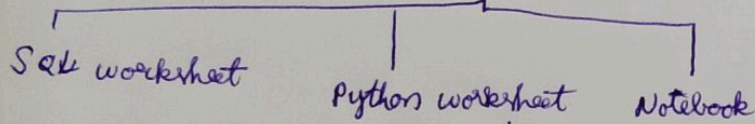 SQL worksheet
Python worksheet
Notebook